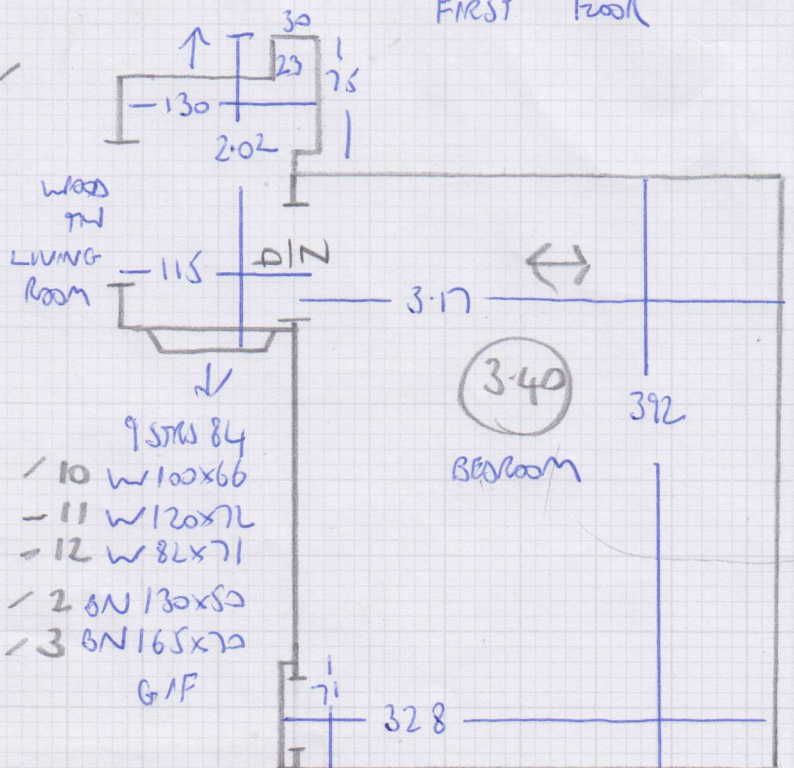 FIRST FLOOR
30
23
75
130
2.02
WOOD
IN
LIVING
ROOM
115
D/Z
3.17
3.40
392
BEDROOM
9 STRS 84
10 W 100x66
11 W 120x72
12 W 82x71
2 BN 130x50
3 BN 165x70
G/F
71
328